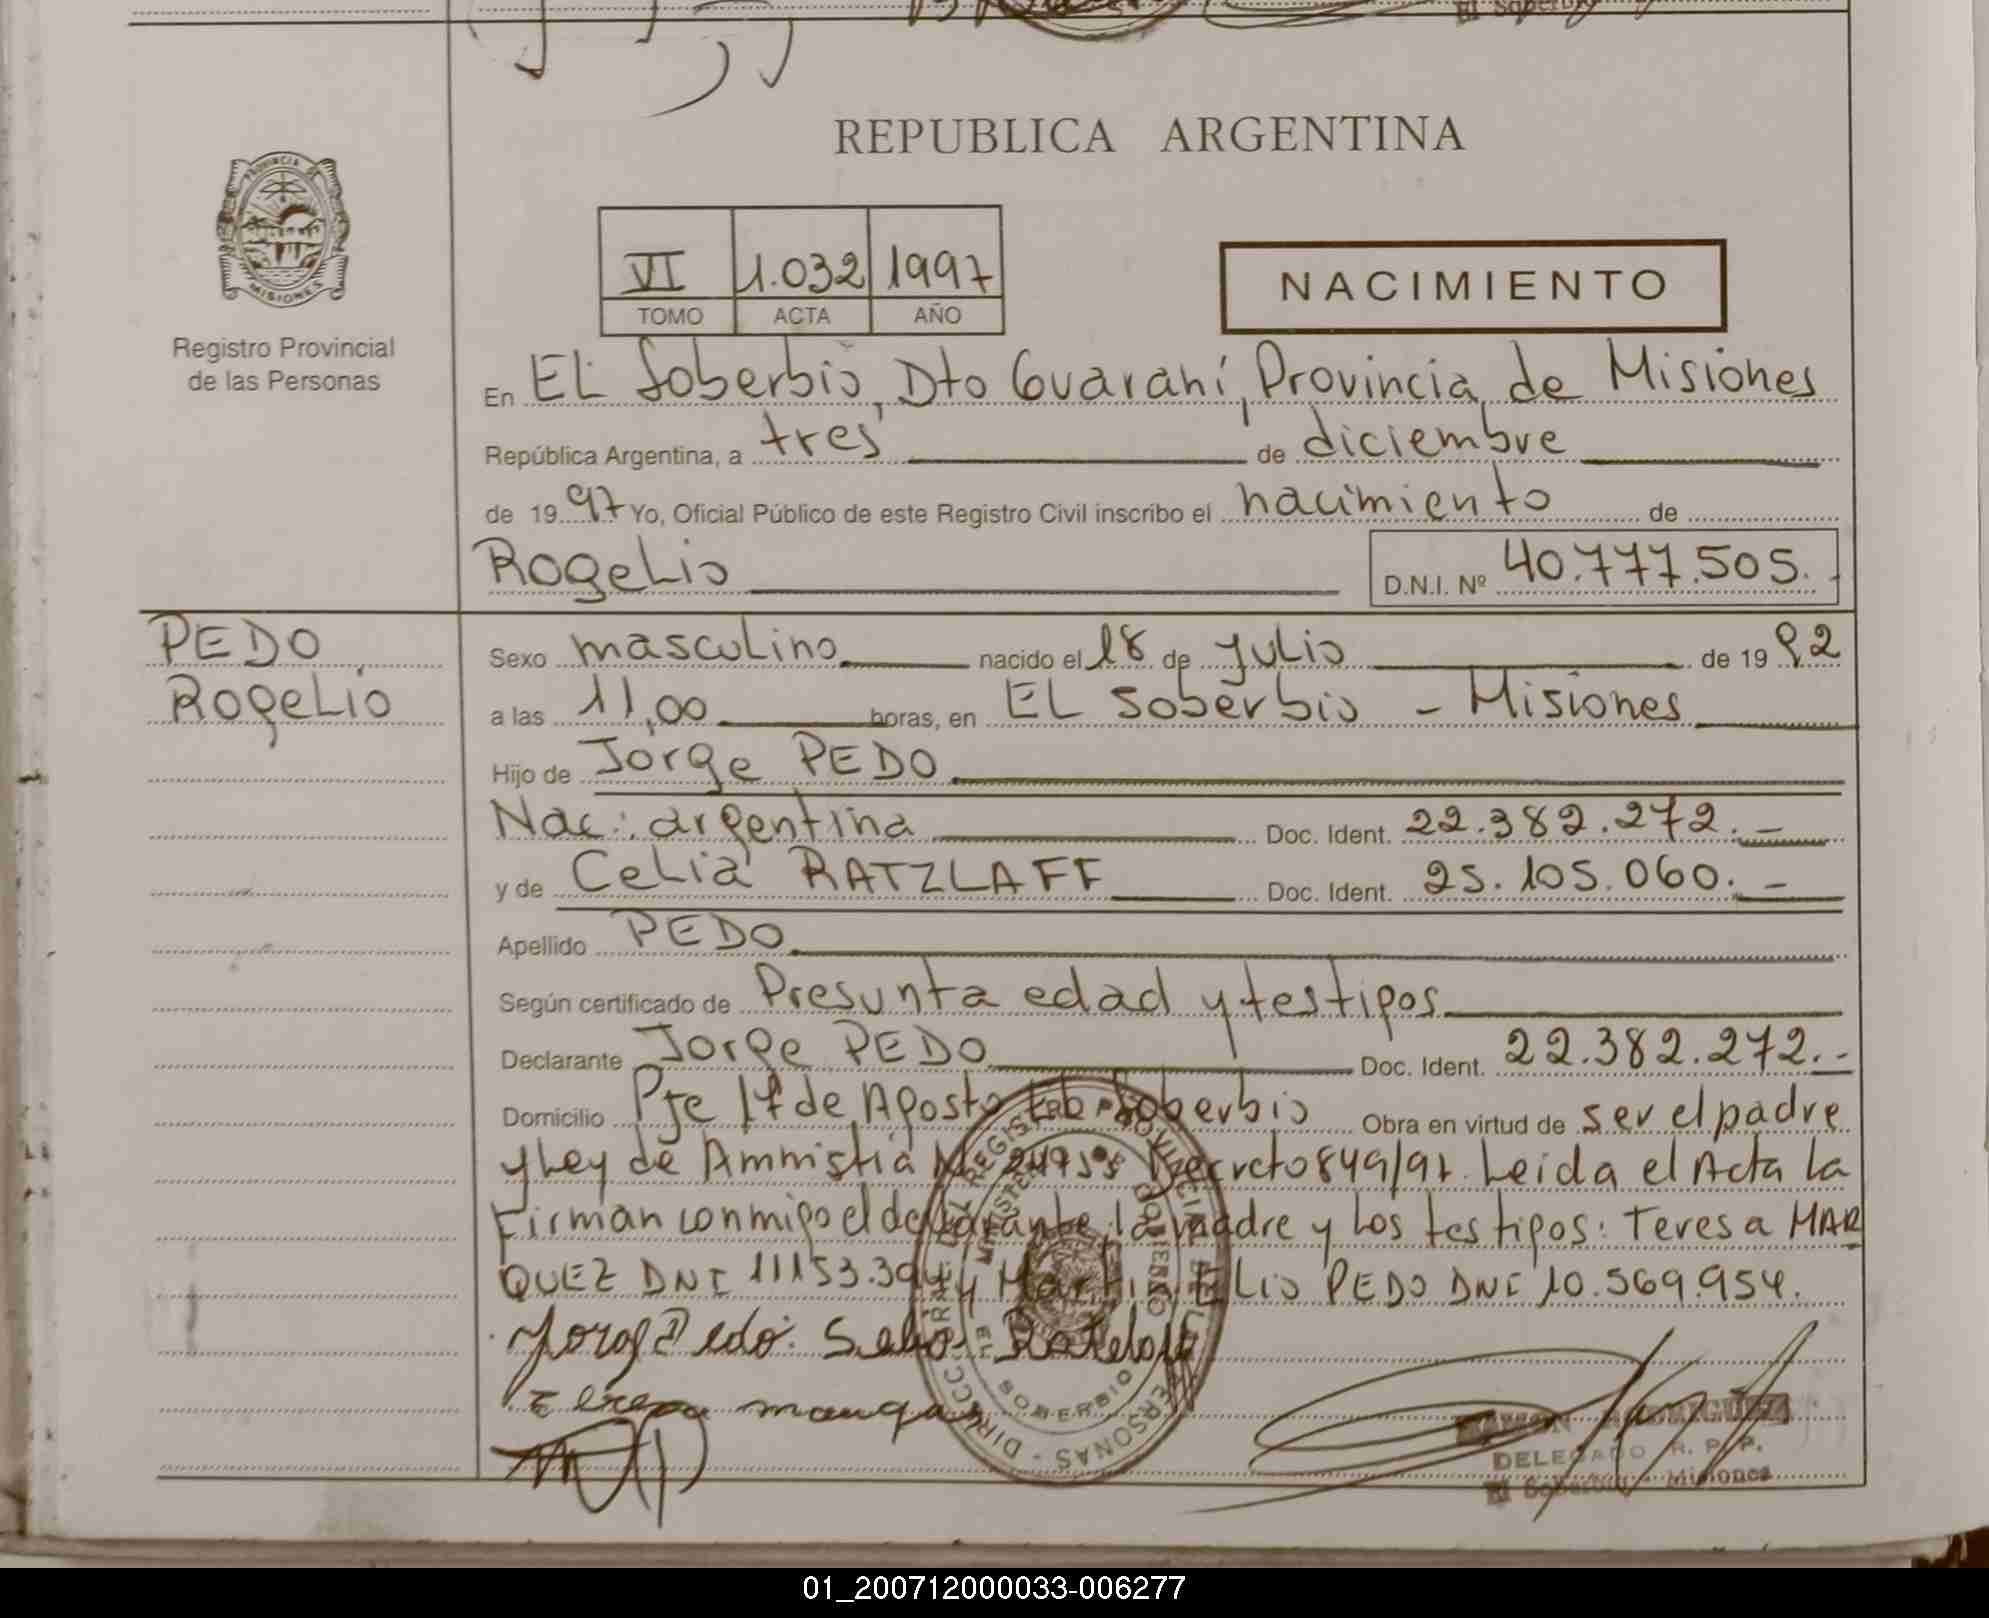 El Soberbio
REPUBLICA ARGENTINA
PROVINCIA DE MISIONES
Registro Provincial
de las Personas
VI 1.032 1997
TOMO ACTA AÑO
NACIMIENTO
En EL Soberbio, Dto Guaraní, Provincia de Misiones
República Argentina, a tres de diciembre
de 1997 Yo, Oficial Público de este Registro Civil inscribo el nacimiento de
Rogelio D.N.I. Nº 40.777.505.
PEDO
Rogelio
Sexo masculino nacido el 18 de Julio de 1992
a las 11,00 horas, en EL Soberbio - Misiones
Hijo de Jorge PEDO
Nac: argentina Doc. Ident. 22.382.272.-
y de Celia RATZLAFF Doc. Ident. 25.105.060.-
Apellido PEDO
Según certificado de Presunta edad y testigos
Declarante Jorge PEDO Doc. Ident. 22.382.272.-
Domicilio Pje 17 de Agosto Soberbio Obra en virtud de ser el padre
y Ley de Amnistia Nº 24755 Decreto 849/97. Leida el Acta la
Firman conmigo el declarante, la madre y los testigos: Teresa MAR
QUEZ DNI 11153.394 y Martin ELio PEDO DNI 10.569.954.
DIRECCION GRAL DEL REGISTRO PROVINCIAL DE LAS PERSONAS
MINISTERIO DE GOBIERNO
EL SOBERBIO
DELEGADO R. P. P.
El Soberbio - Misiones
01_200712000033-006277